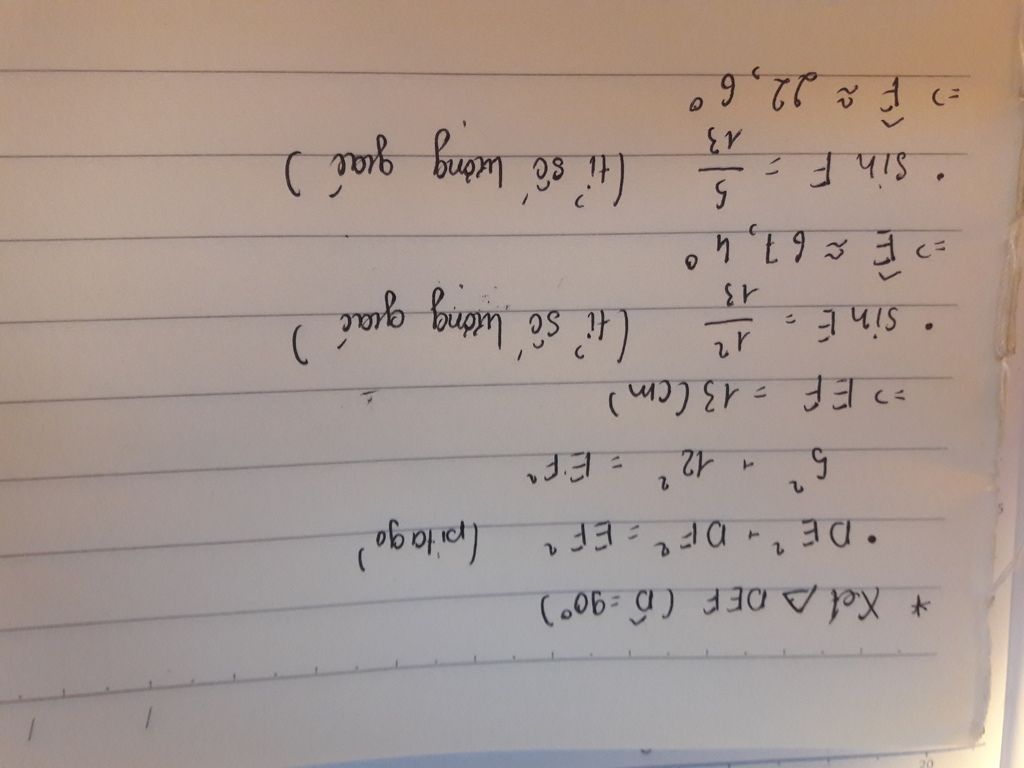 * Xét △ DEF (D̂ = 90°)
• DE² + DF² = EF² (pitago)
5² + 12² = EF²
=> EF = 13 (cm)
• Sin E = 12/13 (tỉ số lượng giác)
=> Ê ≈ 67,4°
• Sin F = 5/13 (tỉ số lượng giác)
=> F̂ ≈ 22,6°
20